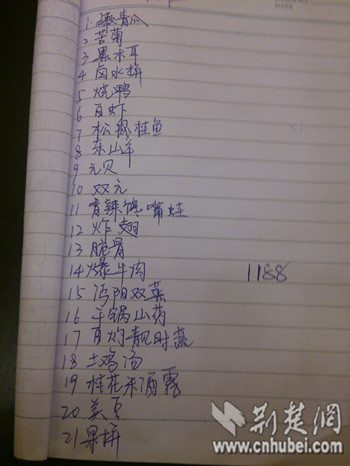 1 酸青瓜
2 苦菊
3 黑木耳
4 卤水拼
5 烧鸭
6 白虾
7 松鼠桂鱼
8 东山羊
9 元贝
10 双元
11 香辣馋嘴蛙
12 炸翅
13 脆骨
14 爆牛肉 1188
15 沔阳双蒸
16 干锅山药
17 白灼靓时蔬
18 土鸡汤
19 桂花米酒露
20 美点
21 果拼
荆楚网
www.cnhubei.com